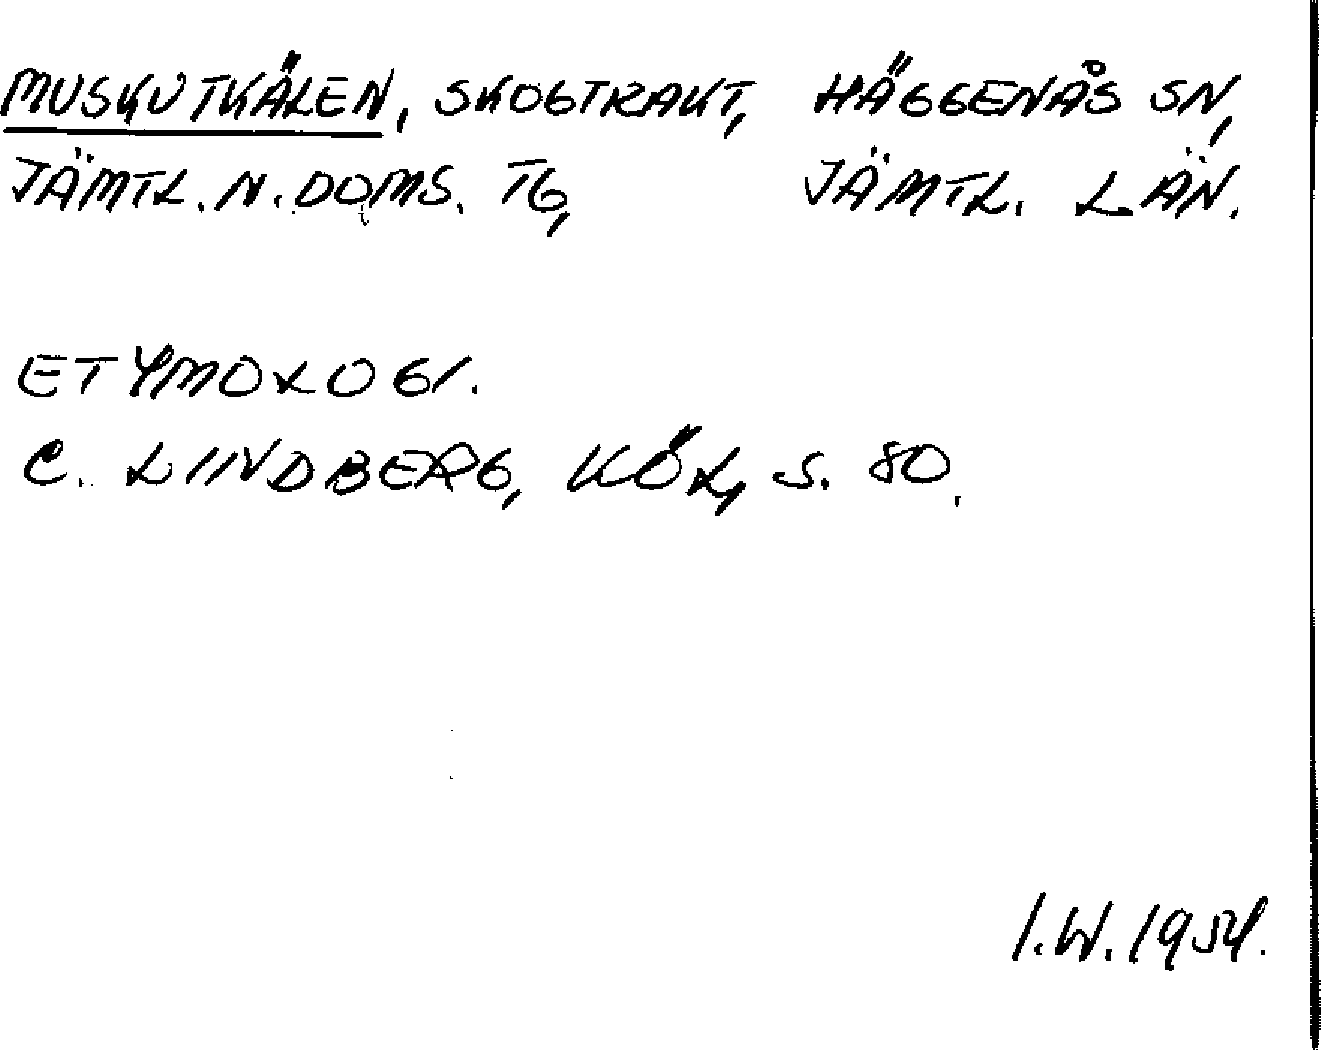 MUSKUTKÄLEN, SKOGTRAKT, HÄGGENÅS SN,
JÄMTL. N. DOMS. TG, JÄMTL. LÄN.
ETYMOLOGI.
C. LINDBERG, KÖL, S. 80.
I.W. 1954.